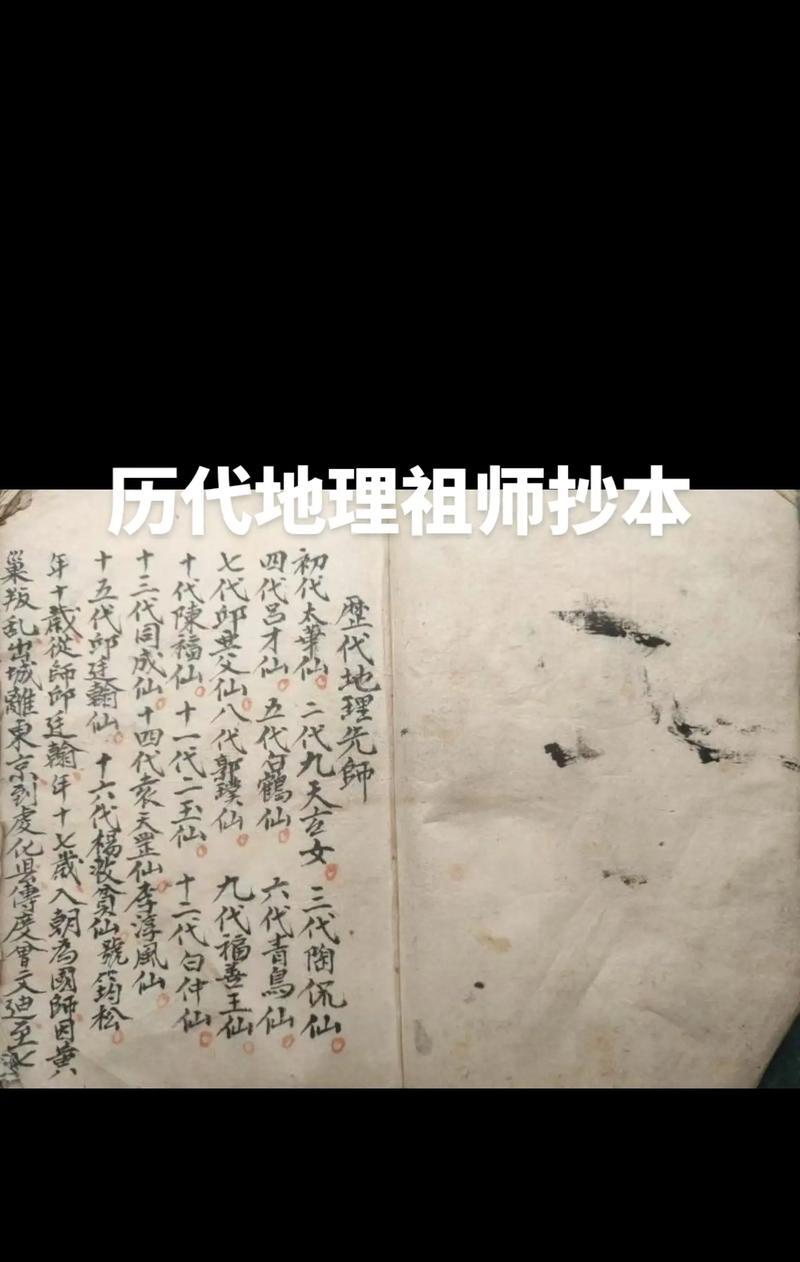 历代地理祖师抄本
歷代地理先師
初代太華仙。二代九天玄女。三代陶侃仙。
四代呂才仙。五代白鶴仙。六代青鳥仙。
七代邱畀父仙。八代郭璞仙。九代福善王仙。
十代陳福仙。十一代二玉仙。十二代白仲仙。
十三代同成仙。十四代袁天罡仙李淳風仙。
十五代邱廷翰仙。十六代楊救貧仙號筠松。
年十歲從師邱廷翰年十七歲入朝為國師因黃
巢叛乱出城離東京到虔化县傳度曾文迪至